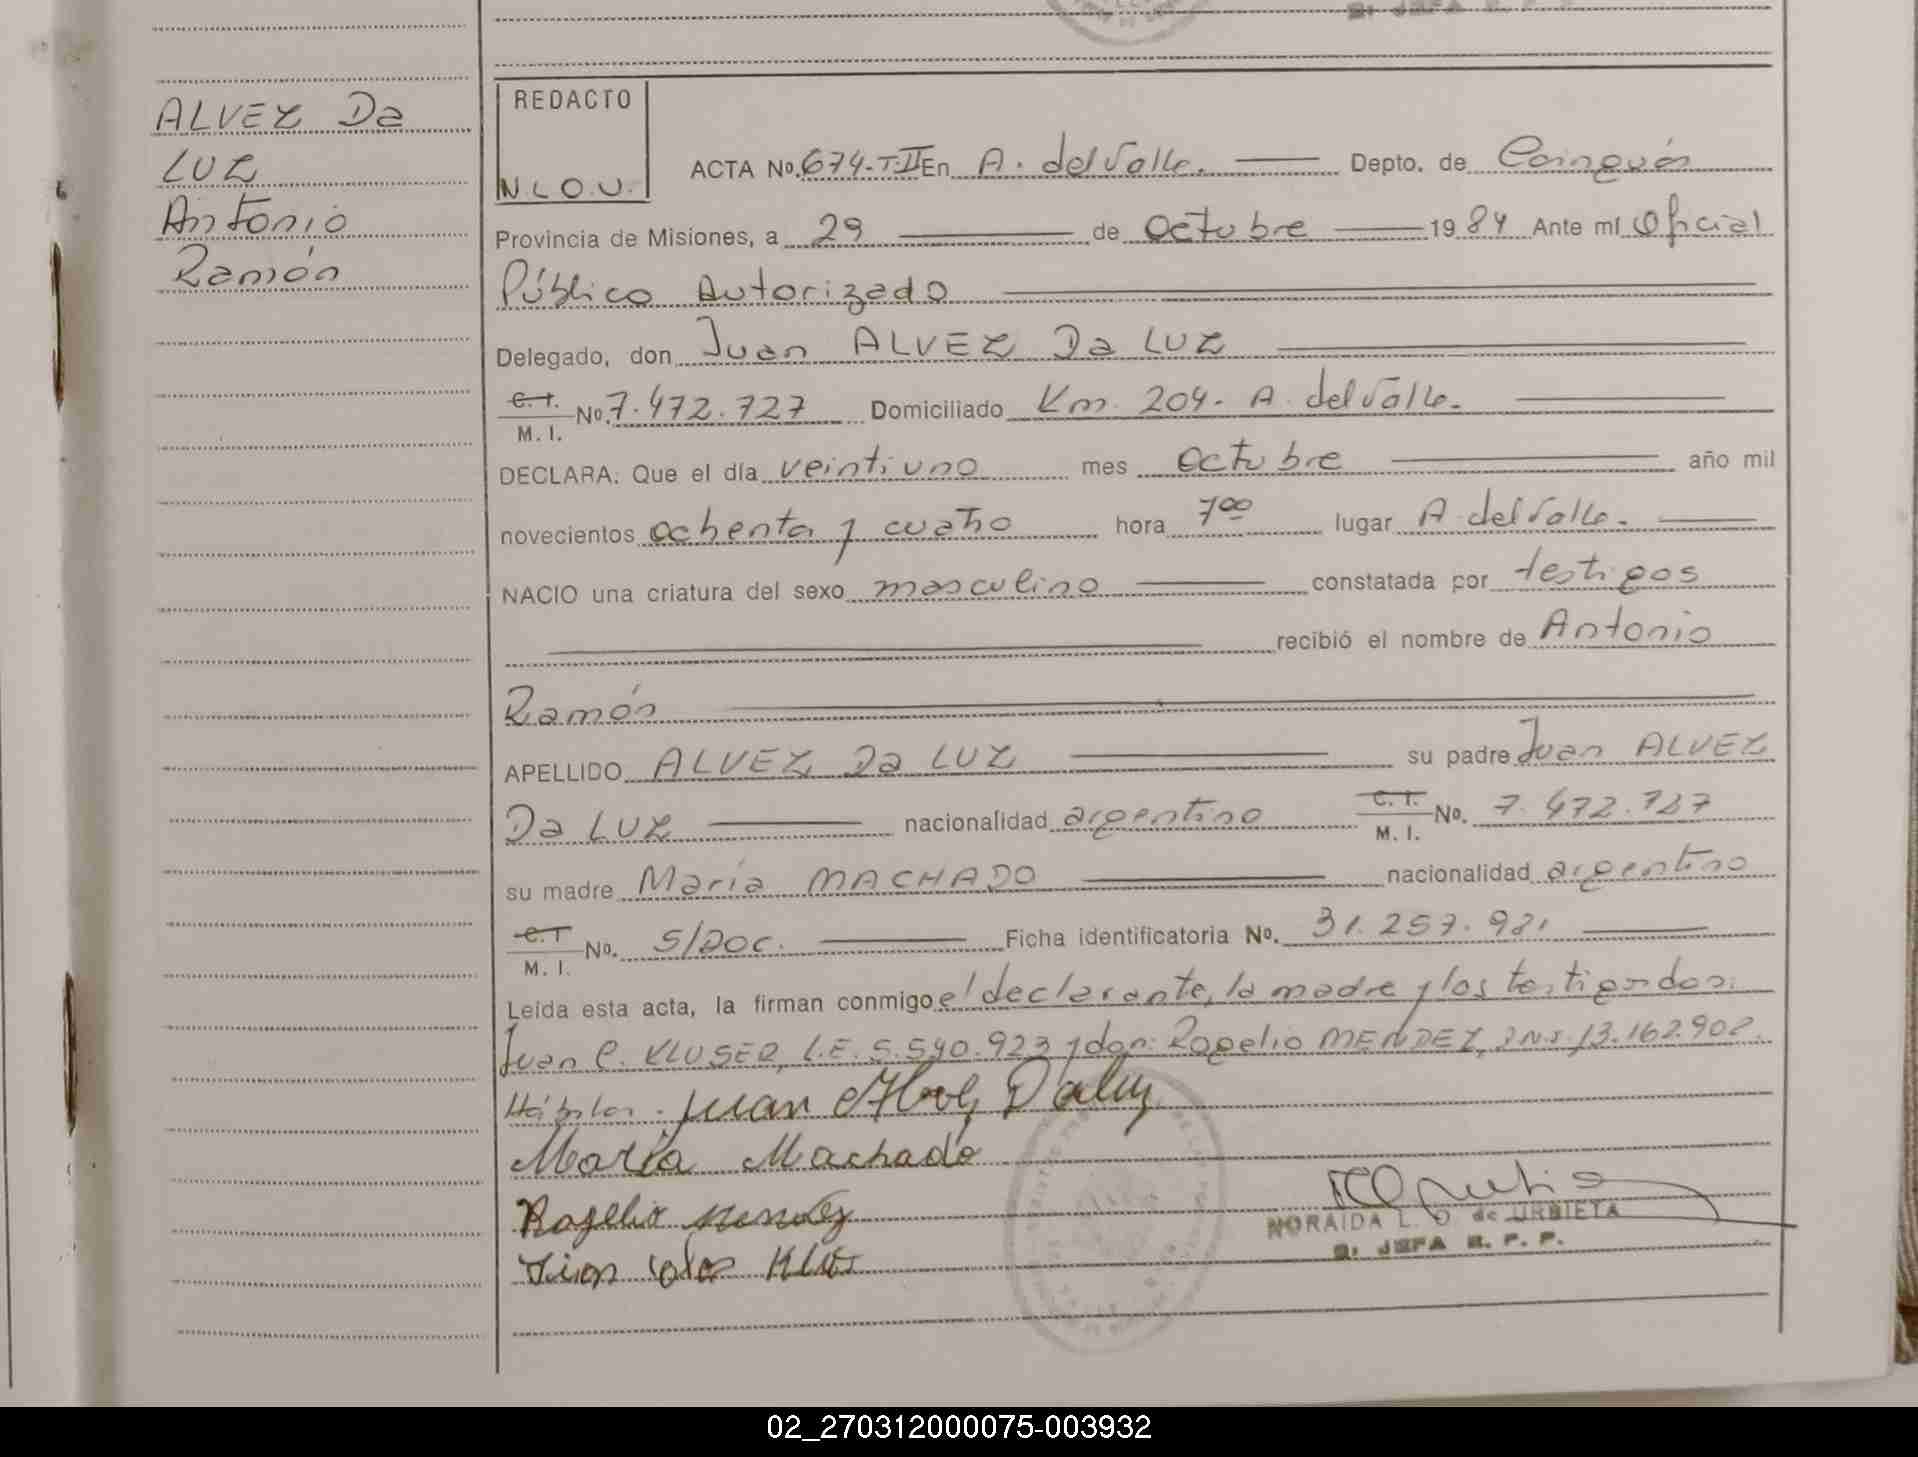 ALVEZ Da
LUZ
Antonio
Ramón
REDACTO
N.L.O.U.
ACTA No. 674-T-II En A. del Valle. Depto. de Cainguás
Provincia de Misiones, a 29 de Octubre 1984 Ante mí Oficial
Público Autorizado
Delegado, don Juan ALVEZ Da LUZ
C. I. M. I. No. 7.472.727 Domiciliado Km. 204. A. del Valle.
DECLARA: Que el día veintiuno mes octubre año mil
novecientos ochenta y cuatro hora 7 00 lugar A del Valle.
NACIO una criatura del sexo masculino constatada por testigos
recibió el nombre de Antonio
Ramón
APELLIDO ALVEZ Da LUZ su padre Juan ALVEZ
Da LUZ nacionalidad argentino C. I. M. I. No. 7.472.727
su madre María MACHADO nacionalidad argentino
C. I M. I. No. S/Doc. Ficha identificatoria No. 31.257.981
Leída esta acta, la firman conmigo el declarante, la madre y los testigos don:
Juan C. KLUSER, L.E. 5.590.923 y don: Rogelio MENDEZ, D N.I. 13.162.902.
Hábiles. Juan Alvez Daluz
María Machado
Rogelio Mendez
NORAIDA L. O de URBIETA
JEFA R. P. P.
02_270312000075-003932